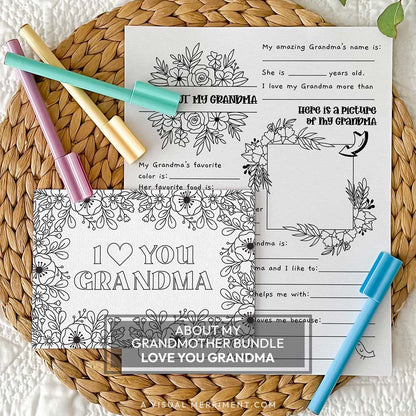 My amazing Grandma's name is:
She is years old.
I love my Grandma more than
UT MY GRANDMA
Here is a picture
of my grandma
My Grandma's favorite
color is:
Her favorite food is:
I YOU
GRANDMA
ndma is:
ma and I like to:
helps me with:
loves me because:
ABOUT MY
GRANDMOTHER BUNDLE
LOVE YOU GRANDMA
A VISUAL MERRIMENT.COM